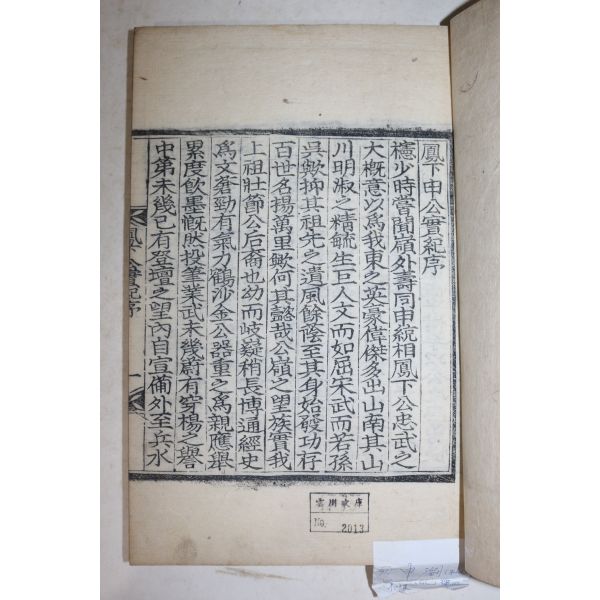 鳳下申公實紀序
穩少時嘗聞嶺外壽同申統相鳳下公忠武之
大槪意以爲我東之英豪偉傑多出山南其山
川明淑之精毓生巨人文而如屈宋武而若孫
吳歟抑其祖先之遺風餘蔭至其身始發功存
百世名揚萬里歟何其懿哉公嶺之望族實我
上祖壯節公后裔也幼而岐嶷稍長博通經史
爲文蒼勁有氣力鶴沙金公器重之爲親應擧
累度飮墨慨然投筆業武未幾蔚有穿楊之譽
中第未幾已有登壇之望內自宣備外至兵水
鳳下公實紀序
一
No. 2013